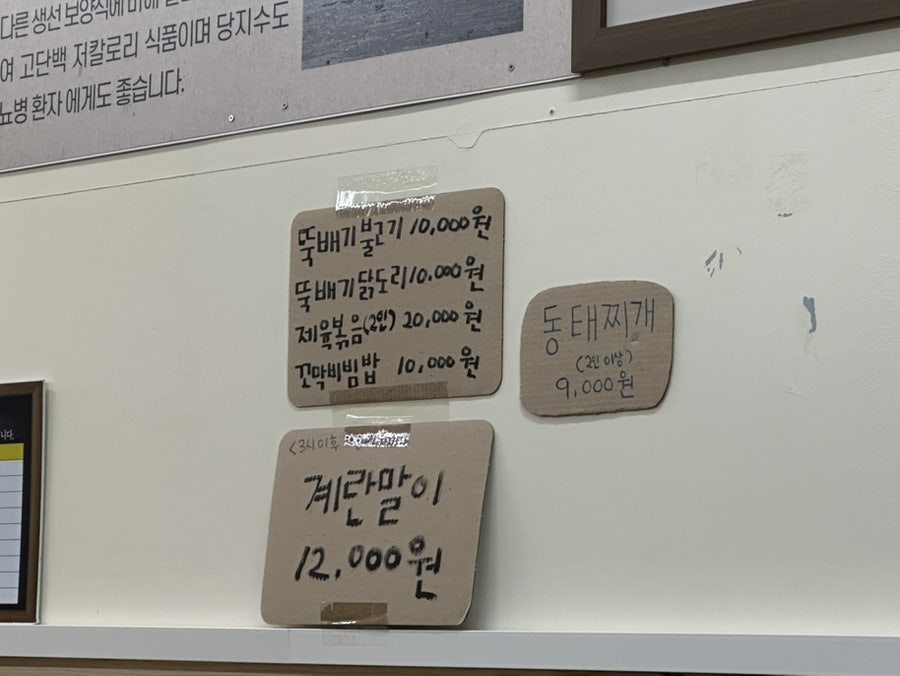 다른 생선 보양식에 비해
여 고단백 저칼로리 식품이며 당지수도
뇨병 환자에게도 좋습니다.
뚝배기불고기 10,000원
뚝배기닭도리 10,000원
제육볶음(2인) 20,000원
꼬막비빔밥 10,000원
동태찌개
(2인 이상)
9,000원
<3시이후
계란말이
12,000원
니다.